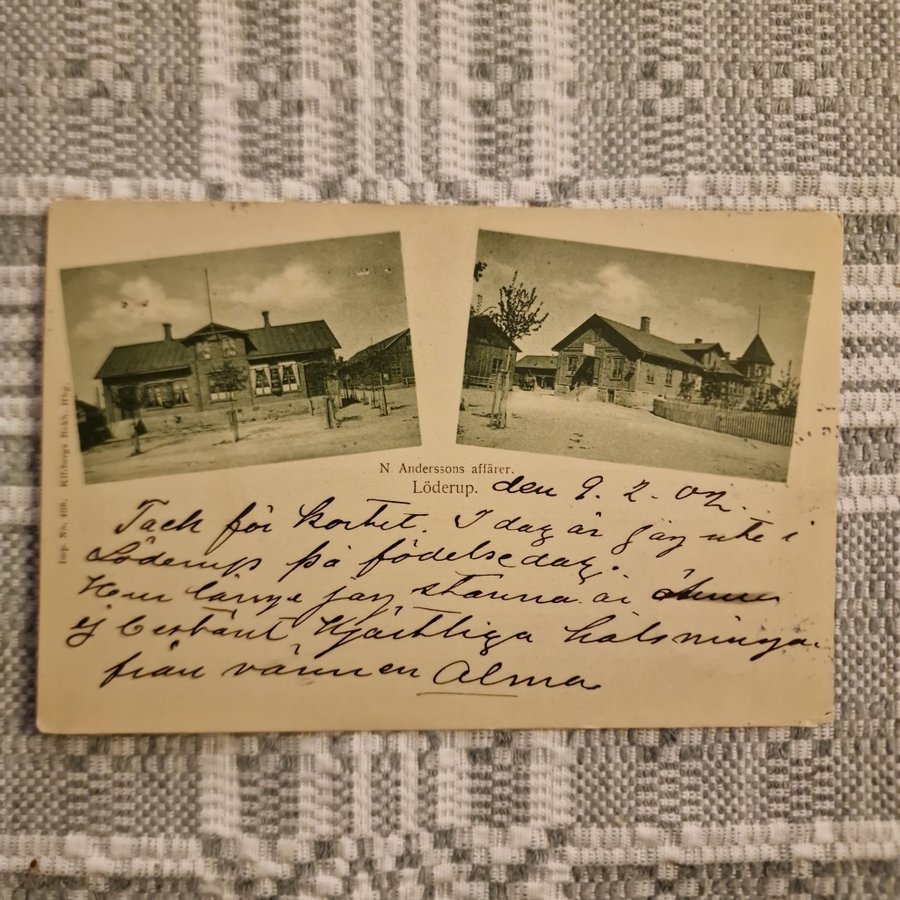 N Anderssons affärer.
Löderup.
den 9. 2. 02.
Tack för kortet. I dag är jag ute i
Löderup på födelsedag.
Hur länge jag stanna är
ej bestämt Hjärtliga hälsningar
från vännen Alma
Imp. No. 408. Killbergs Bokh. Hbg.